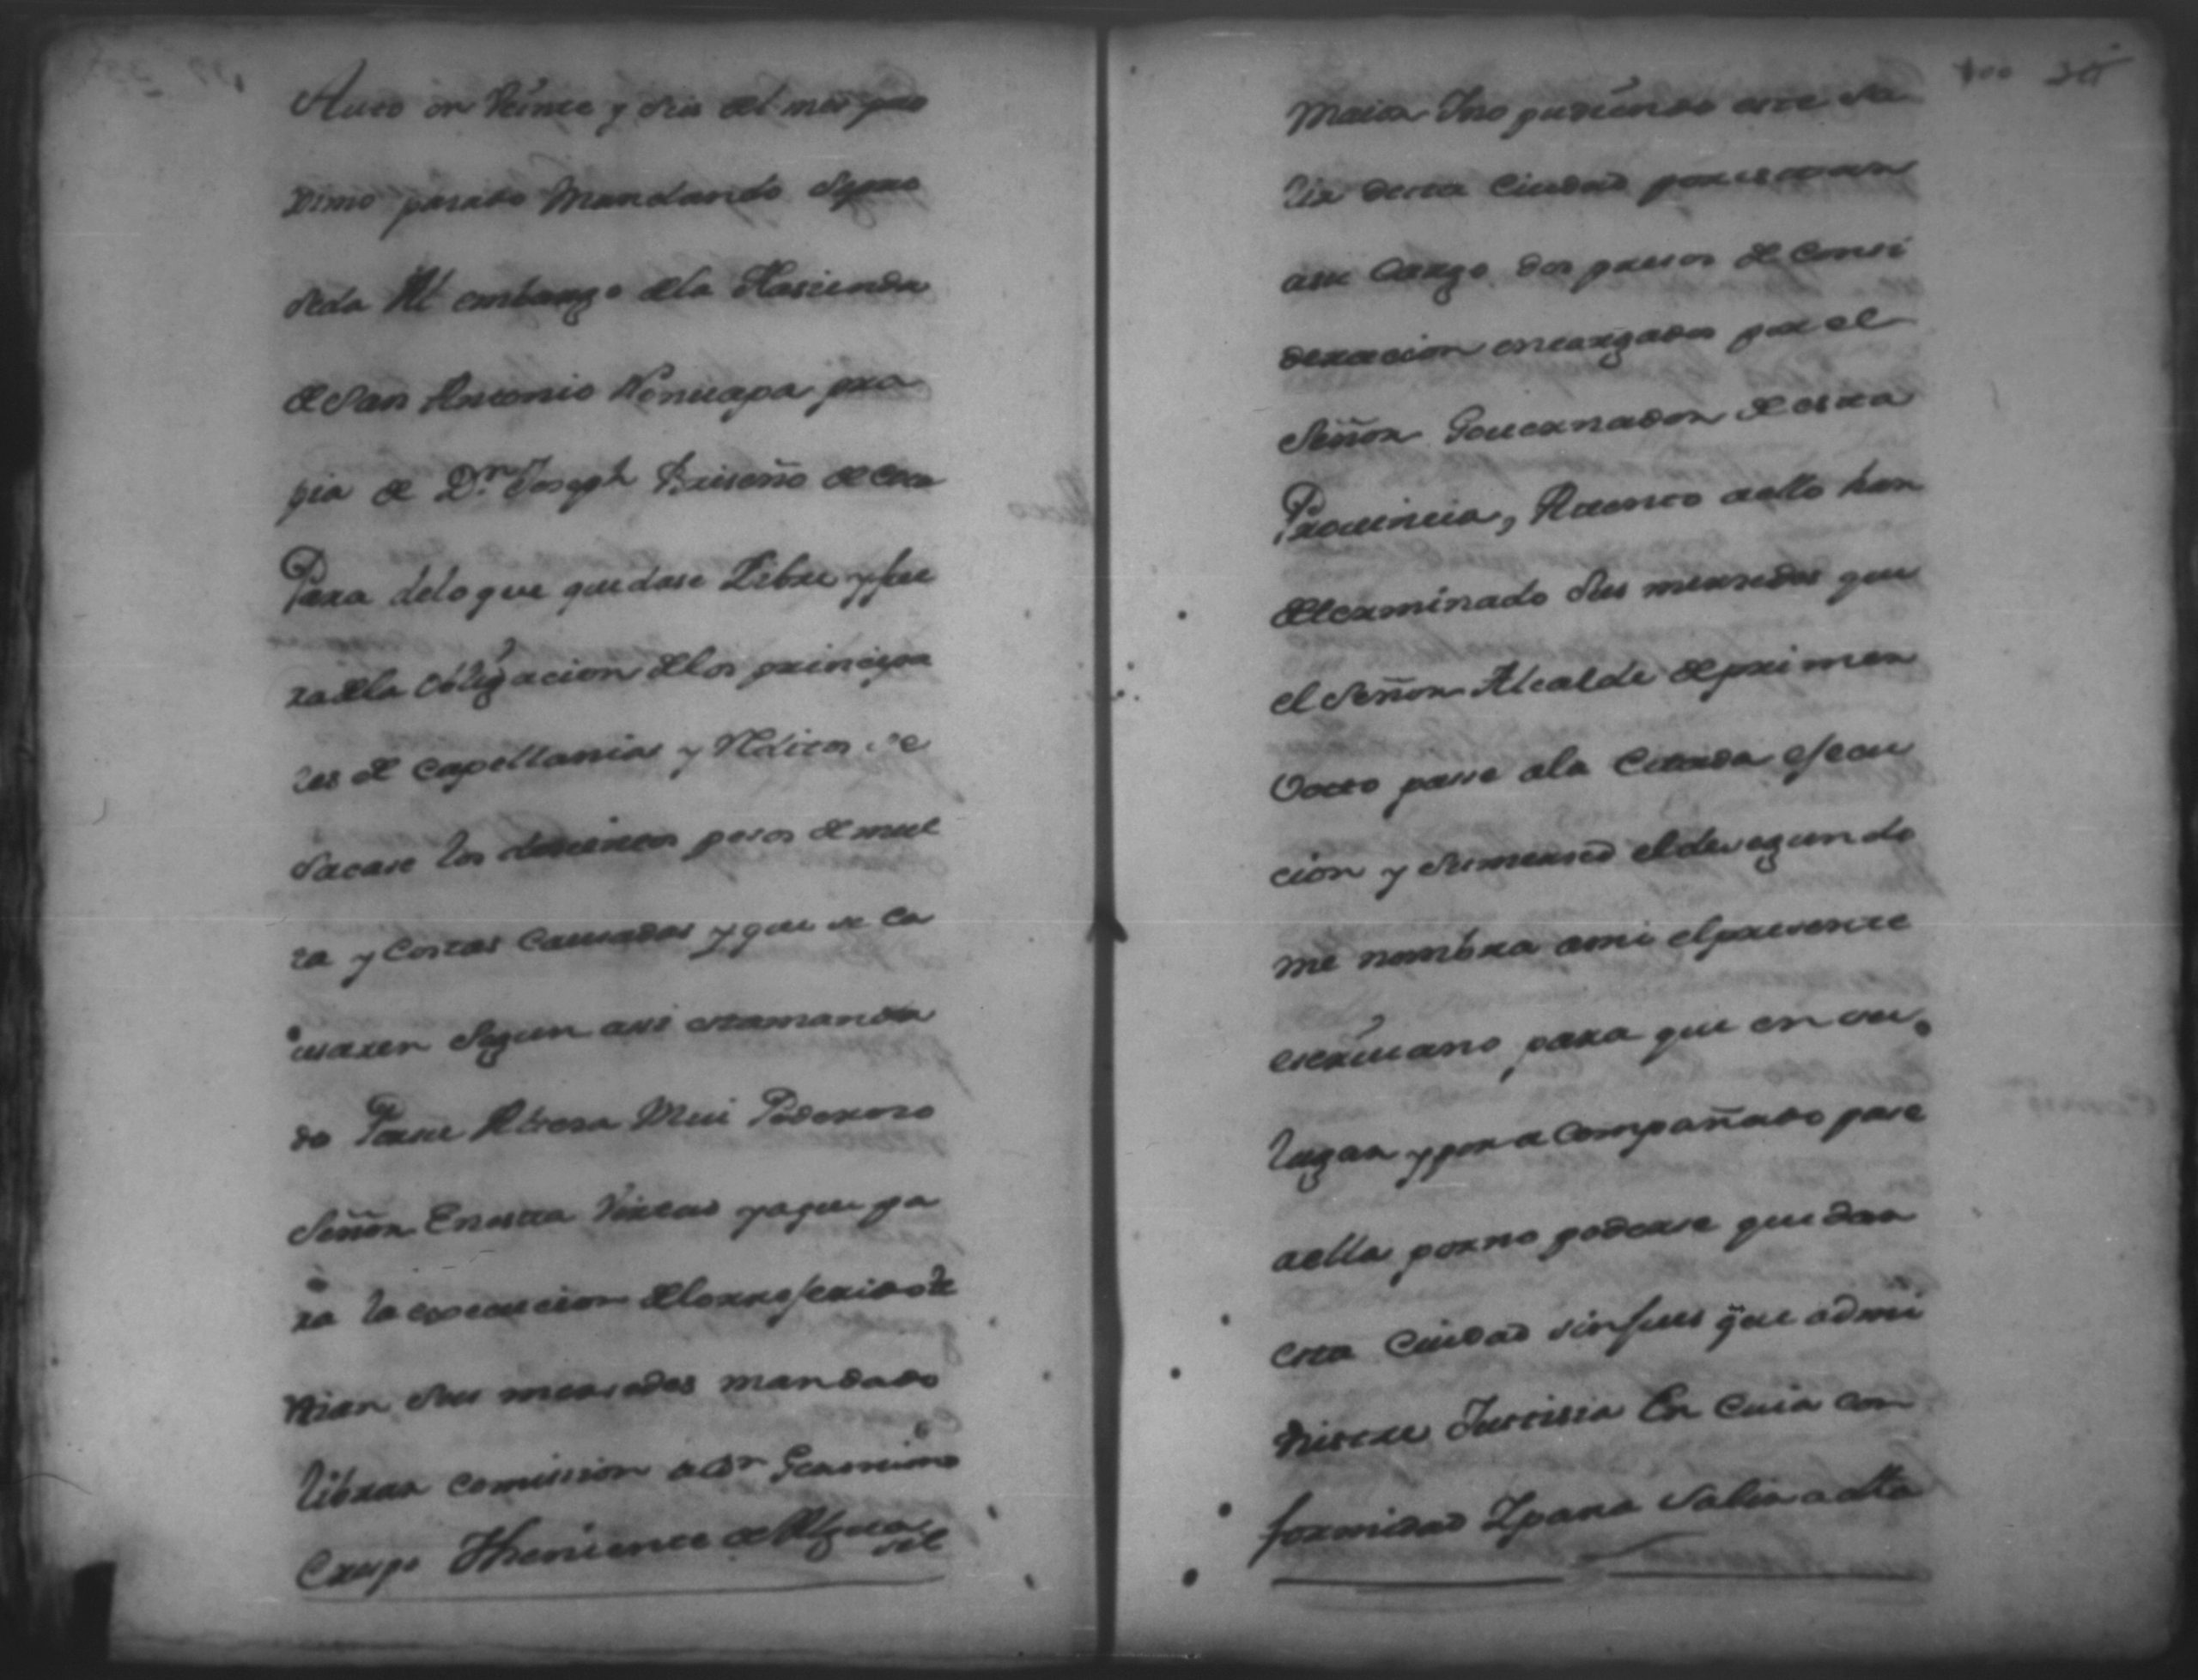 Auto en Veinte y seis del mes pro
ximo pasado Mandando se pro
seda Al embargo dela Hasienda
de San Antonio Nonuapa pro
pia de Dn. Joseph Briseño de Coca
Para delo que quedase Libre y fue
ra dela obligacion delos principa
les de Capellanias y Reditos se
sacase los docientos pesos de mul
ta y Costas Causadas y que se ca
usaren segun assi esta manda
do Por su Alteza Mui Poderoso
Señor En esta Virtud y a que pa
ra la execucion delo rreferido te
nian sus mersedes mandado
librar comission a Dn Geronimo
Crespo Theniente de Algua
sil
100 30
Maior Y no pudiendo este sa
lir desta Ciudad por estar
a su Cargo dos presos de Consi
deracion encargados por el
Señor Gouernador de esta
Prouincia, Atento a ello han
determinado sus mersedes que
el Señor Alcalde de primer
Voto passe ala Citada esecu
cion y su mersed el de segundo
me nombra ami el presente
escriuano para que en su
lugar y por acompañado pase
a ella por no poderse quedar
esta Ciudad sin Jues que admi
nistre Justisia En Cuia con
formidad Y para Salir a dha